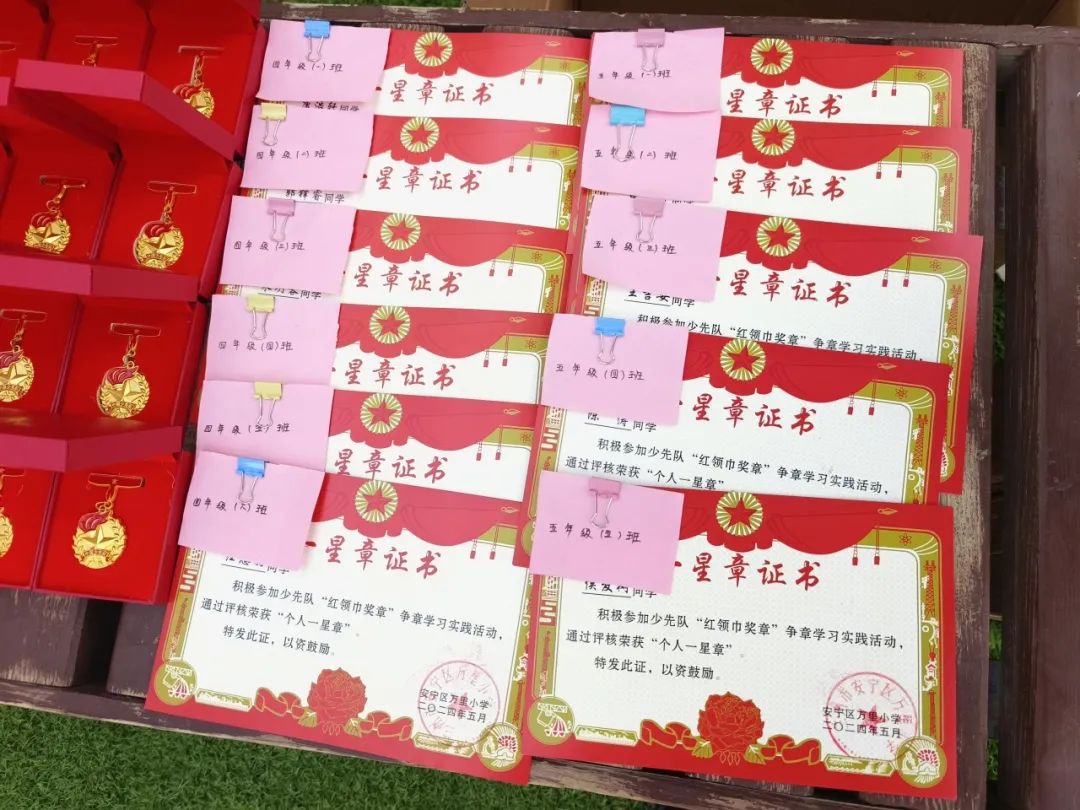 四年级(一)班
星章证书
同学
四年级(二)班
星章证书
同学
四年级(三)班
星章证书
同学
四年级(四)班
星章证书
四年级(五)班
星章证书
四年级(六)班
一星章证书
同学
积极参加少先队“红领巾奖章”争章学习实践活动，
通过评核荣获“个人一星章”
特发此证，以资鼓励。
安宁区万里小学
二〇二四年五月
五年级(一)班
星章证书
五年级(二)班
星章证书
五年级(三)班
星章证书
同学
积极参加少先队“红领巾奖章”争章学习实践活动，
五年级(四)班
星章证书
陈涛同学
积极参加少先队“红领巾奖章”争章学习实践活动，
通过评核荣获“个人一星章”
五年级(五)班
星章证书
同学
积极参加少先队“红领巾奖章”争章学习实践活动，
通过评核荣获“个人一星章”
特发此证，以资鼓励。
安宁区万里小学
二〇二四年五月